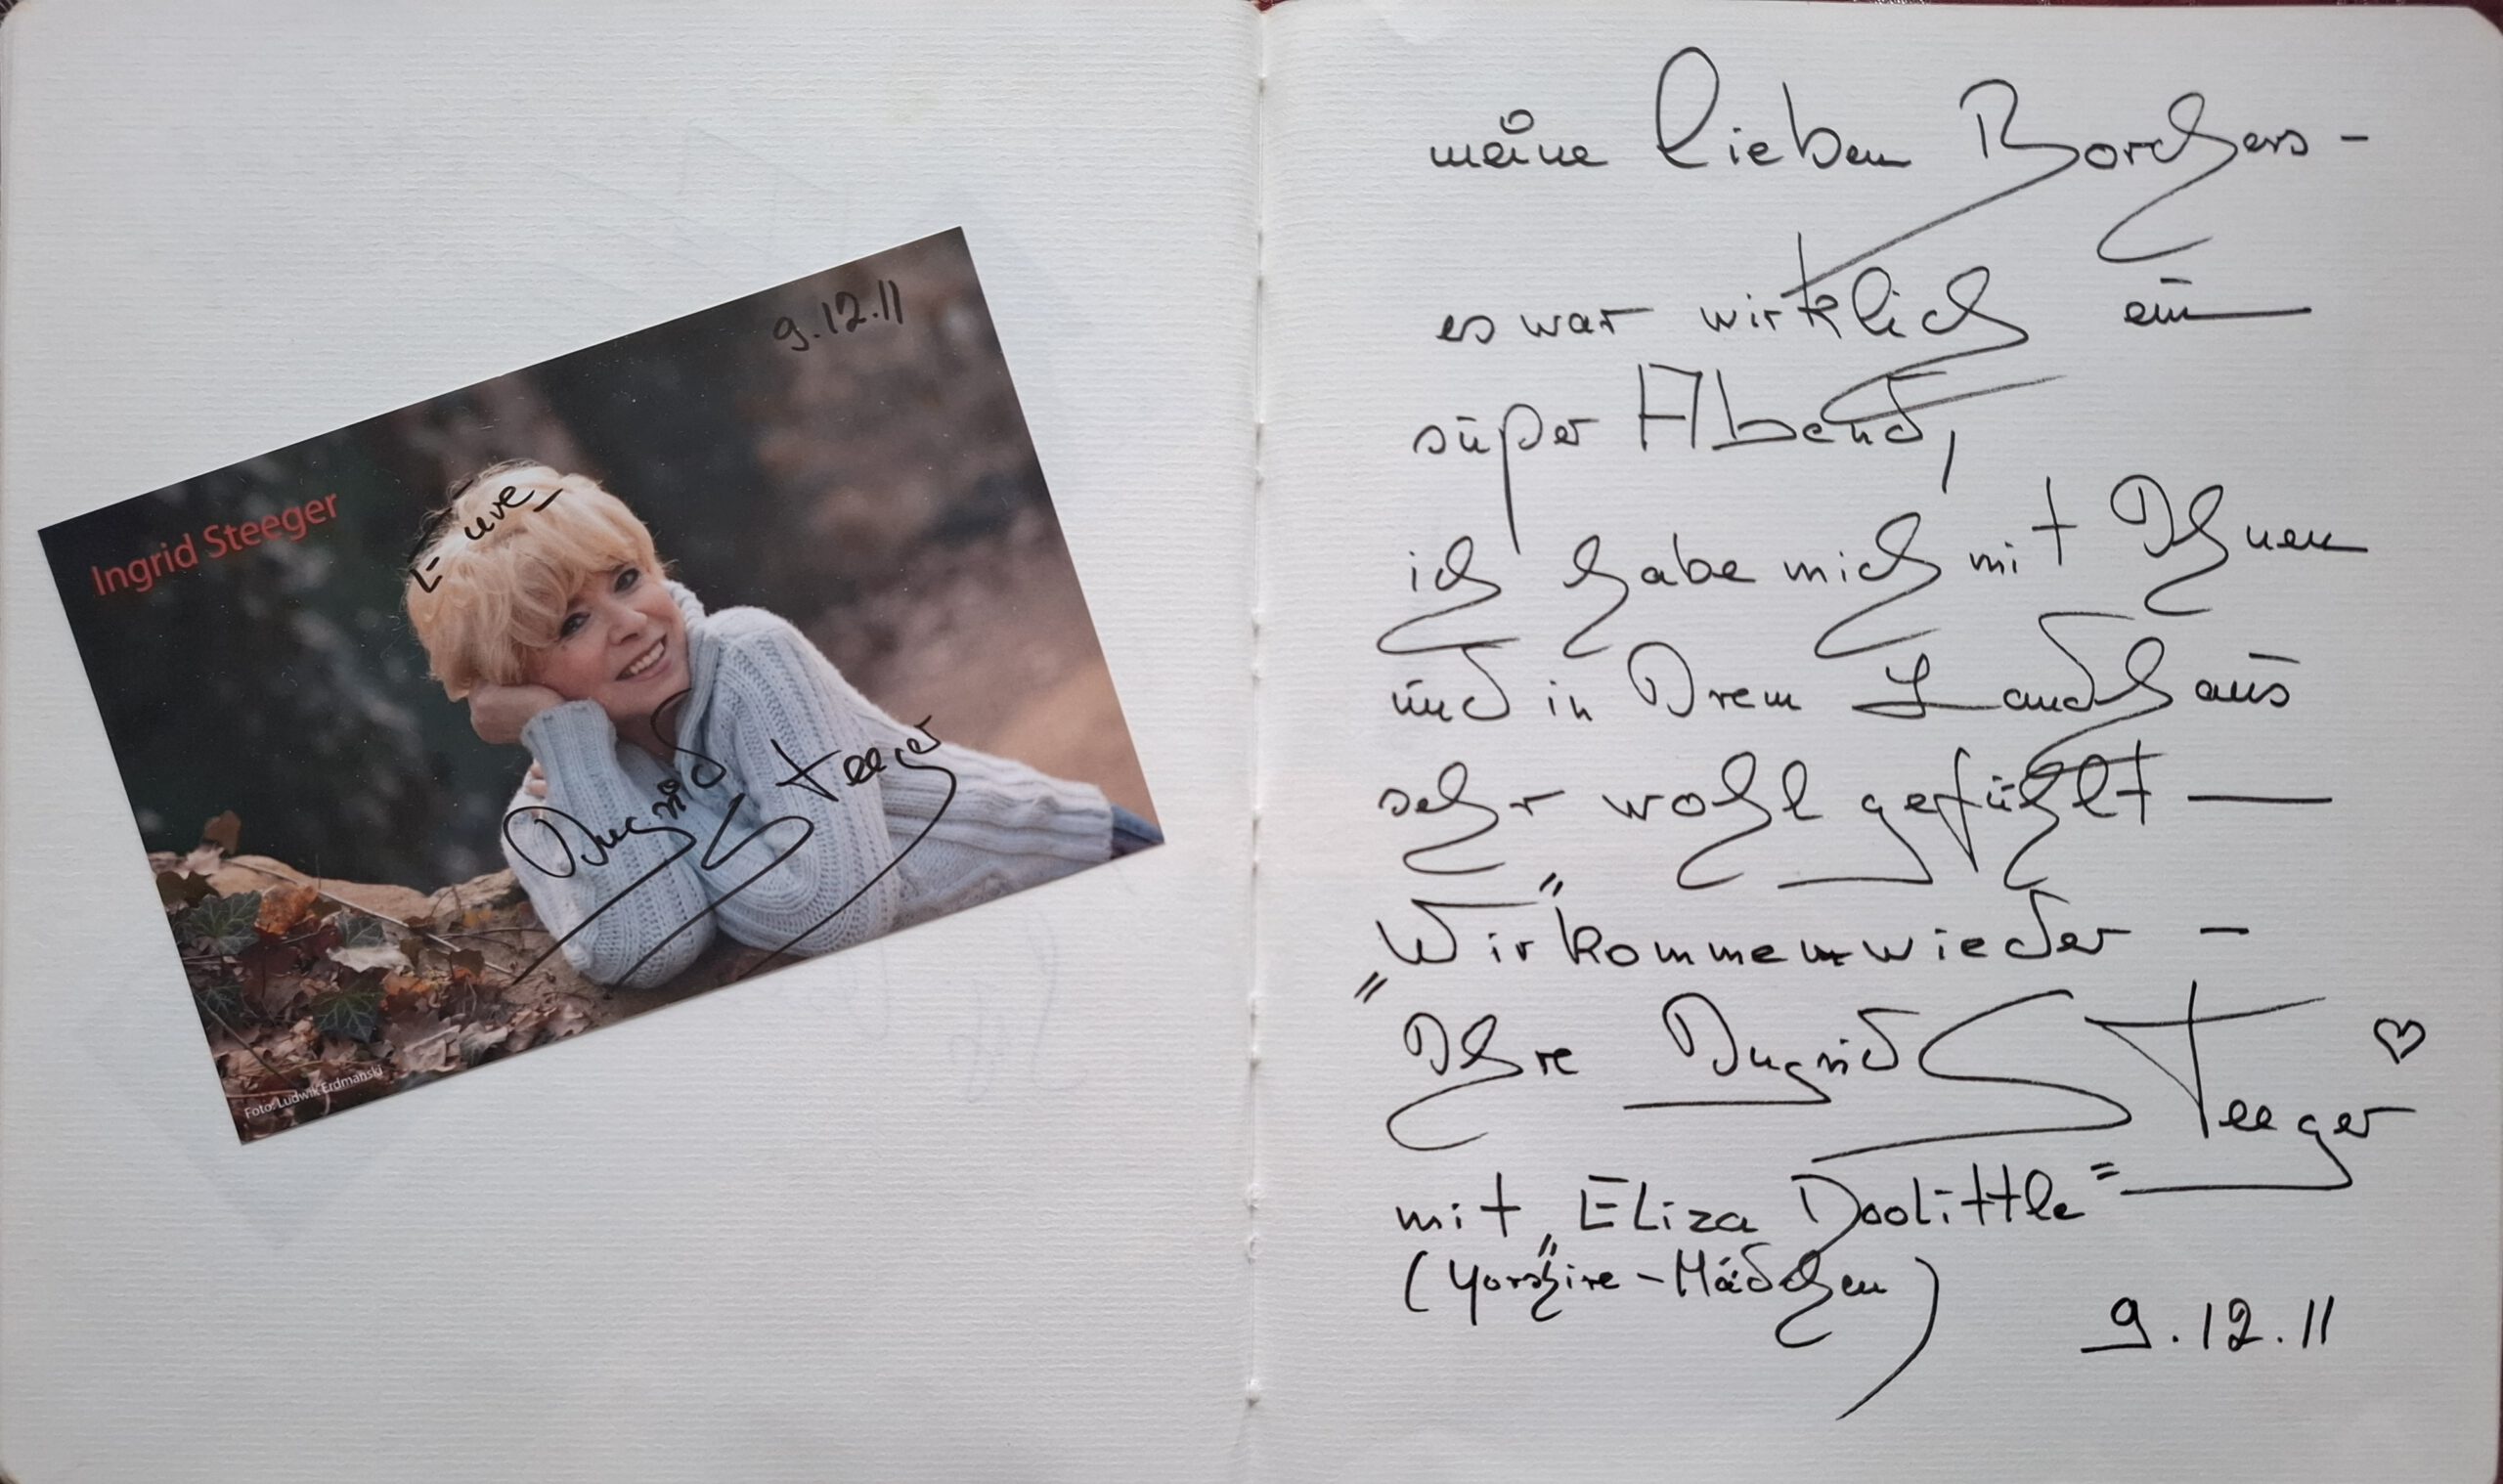 9.12.11
Ingrid Steeger
Eure
Ingrid Steeger
Foto: Ludwik Erdmanski
meine lieben Borchers -
es war wirklich ein
süßer Abend,
ich habe mich mit Ihnen
und in Irem Landhaus
sehr wohl gefühlt —
"Wir kommen wieder" -
Ihre Ingrid Steeger ♡
mit "Eliza Doolittle"
(Yorshire-Mädchen)
9.12.11